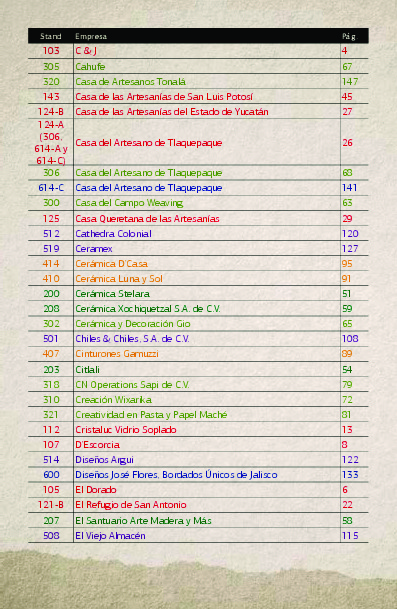 Stand Empresa Pág
103 C & J 4
305 Cahufe 67
320 Casa de Artesanos Tonalá 147
143 Casa de las Artesanías de San Luis Potosí 45
124-B Casa de las Artesanías del Estado de Yucatán 27
124-A
(306,
614-A y
614-C) Casa del Artesano de Tlaquepaque 26
306 Casa del Artesano de Tlaquepaque 68
614-C Casa del Artesano de Tlaquepaque 141
300 Casa del Campo Weaving 63
125 Casa Queretana de las Artesanías 29
512 Cathedra Colonial 120
519 Ceramex 127
414 Cerámica D'Casa 95
410 Cerámica Luna y Sol 91
200 Cerámica Stelara 51
208 Cerámica Xochiquetzal S.A. de C.V. 59
302 Cerámica y Decoración Gio 65
501 Chiles & Chiles, S.A. de C.V. 108
407 Cinturones Gamuzzi 89
203 Citlali 54
318 CN Operations Sapi de C.V. 79
310 Creación Wixarika 72
321 Creatividad en Pasta y Papel Maché 81
112 Cristaluc Vidrio Soplado 13
107 D'Escorcia 8
514 Diseños Argui 122
600 Diseños José Flores, Bordados Únicos de Jalisco 133
105 El Dorado 6
121-B El Refugio de San Antonio 22
207 El Santuario Arte Madera y Más 58
508 El Viejo Almacén 115